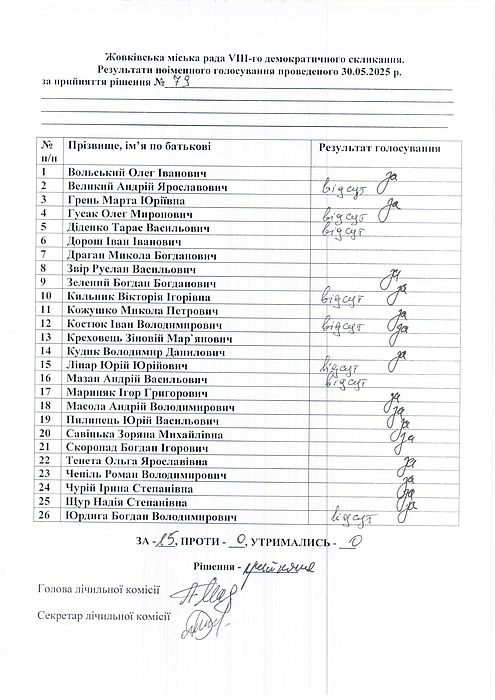 Жовківська міська рада VІІІ-го демократичного скликання.
Результати поіменного голосування проведеного 30.05.2025 р.
за прийняття рішення № 79
№ п/п Прізвище, ім’я по батькові Результат голосування
1 Вольський Олег Іванович за
2 Великий Андрій Ярославович відсут
3 Грень Марта Юріївна за
4 Гусак Олег Миронович відсут
5 Діденко Тарас Васильович відсут
6 Дорош Іван Іванович
7 Драган Микола Богданович
8 Звір Руслан Васильович за
9 Зелений Богдан Богданович за
10 Кильник Вікторія Ігорівна відсут
11 Кожушко Микола Петрович за
12 Костюк Іван Володимирович відсут
13 Креховець Зіновій Мар`янович за
14 Кудик Володимир Данилович за
15 Ліпар Юрій Юрійович відсут
16 Мазан Андрій Васильович відсут
17 Мариняк Ігор Григорович за
18 Масола Андрій Володимирович за
19 Пилипець Юрій Васильович за
20 Савіцька Зоряна Михайлівна за
21 Скоропад Богдан Ігорович
22 Тенета Ольга Ярославівна за
23 Чепіль Роман Володимирович за
24 Чурій Ірина Степанівна за
25 Щур Надія Степанівна за
26 Юрдига Богдан Володимирович відсут
ЗА - 15, ПРОТИ - 0, УТРИМАЛИСЬ - 0
Рішення - прийнято
Голова лічильної комісії
Секретар лічильної комісії